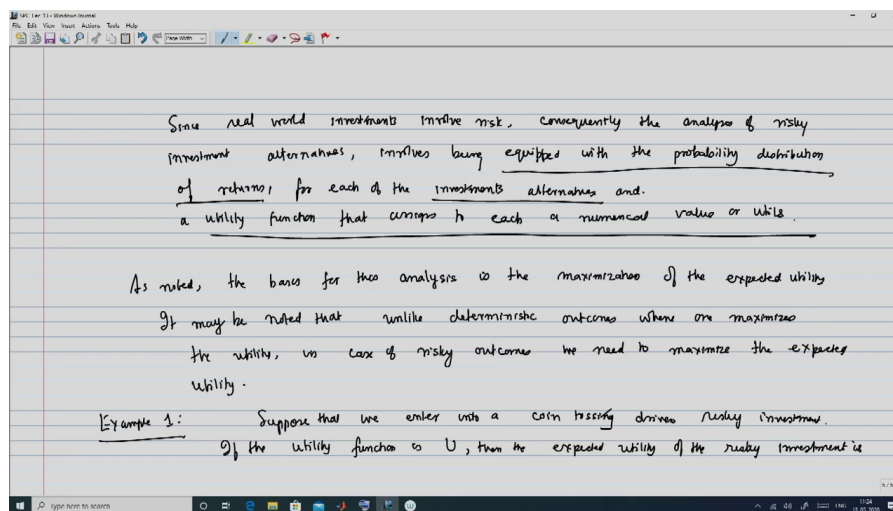 SPC Lec 13 - Windows Journal
File Edit View Insert Actions Tools Help
Page Width
Since real world investments involve risk, consequently the analyses of risky
investment alternatives, involves being equipped with the probability distribution
of returns, for each of the investments alternatives and.
a utility function that assigns to each a numerical value or utils.
As noted, the bases for this analysis is the maximization of the expected utility
It may be noted that unlike deterministic outcomes where one maximizes
the utility, in case of risky outcomes we need to maximize the expected
utility.
Example 1: Suppose that we enter into a coin tossing driven risky investment.
If the utility function is U, then the expected utility of the risky investment is
5/5
Type here to search
ENG 11:24